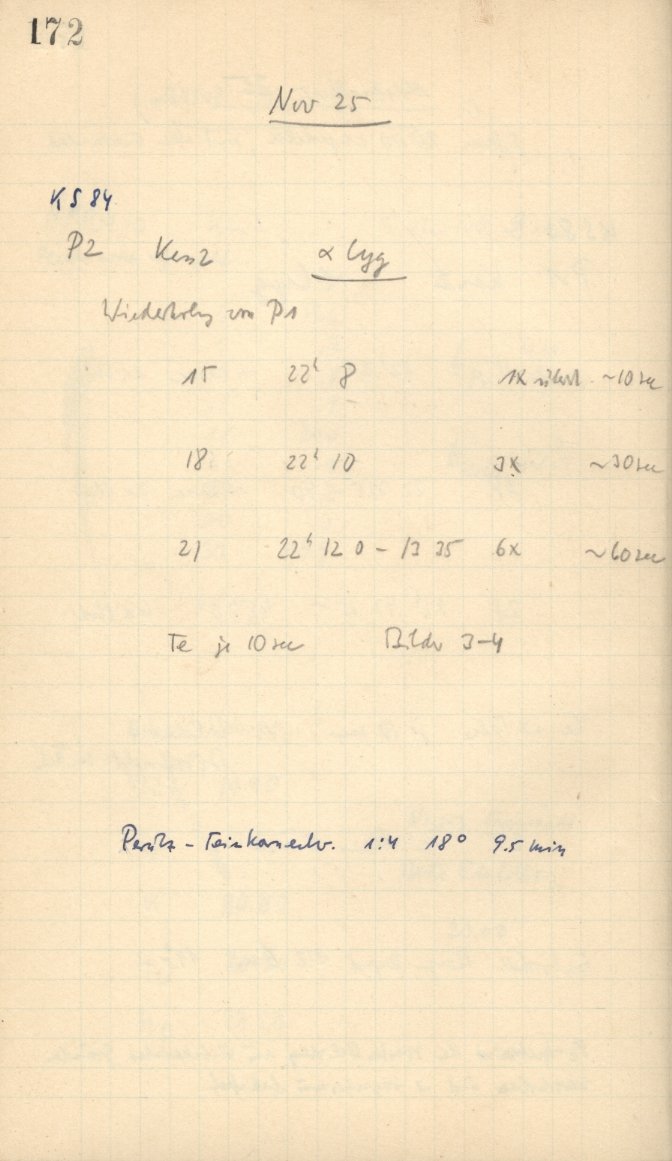 172
Nov 25
KS 84
P2 α Cyg
Wiederholg von P1
15 22h 8 1x ~10 sec
18 22h 10 3x ~30 sec
21 22h 12 0 - 13 35 6x ~60 sec
Te je 10 sec Bilder 3-4
Perutz - Feinkornentw. 1:4 18° 9.5 min